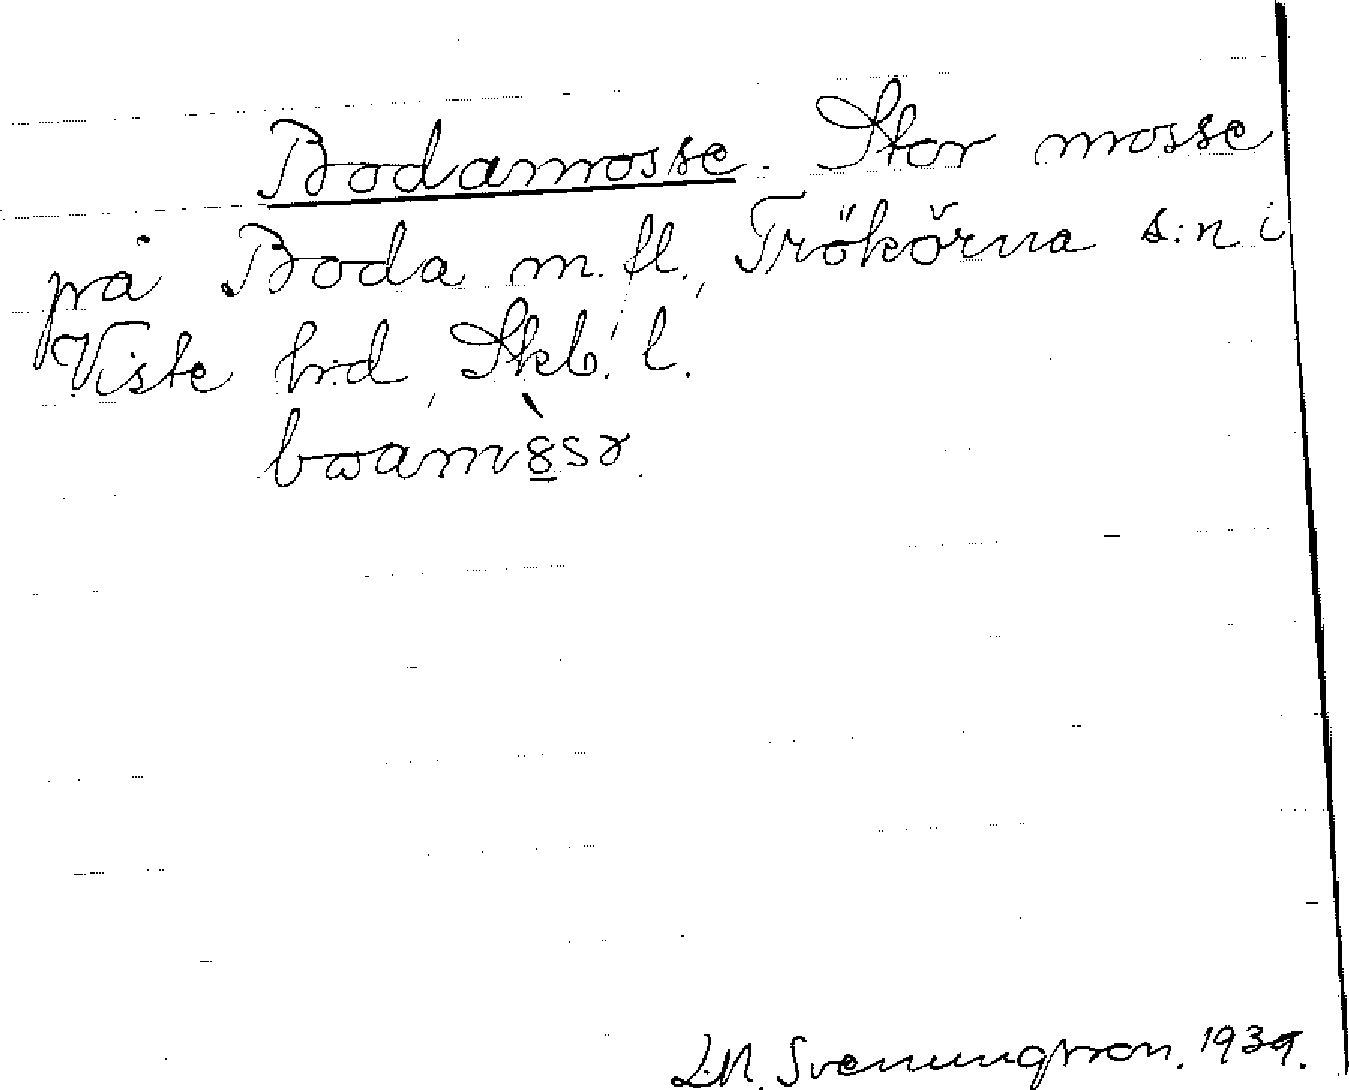 Bodamosse. Stor mosse
på Boda m. fl., Trökörna s:n i
Viste h:d, Skb. l.
bωamòsə.
L.M. Svenungsson. 1939.